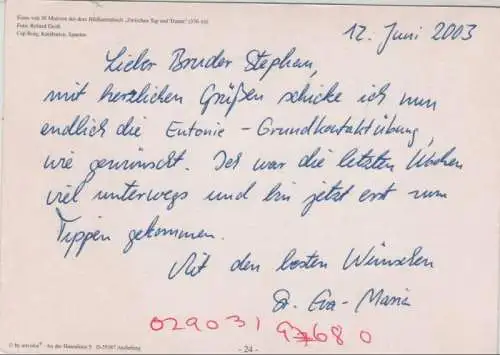 Eines von 30 Motiven aus dem Bildkartenbuch „Zwischen Tag und Traum"
Foto: Roland Groß
Cap Roig, Katalonien, Spanien
12. Juni 2003
Lieber Bruder Stephan,
mit herzlichen Grüßen schicke ich nun
endlich die Eutonie-Grundkontaktübung,
wie gewünscht. Ich war die letzten Wochen
viel unterwegs und bin jetzt erst zum
Tippen gekommen.
Mit den besten Wünschen
Sr. Eva-Maria
029031 97680
© by
- 24 -